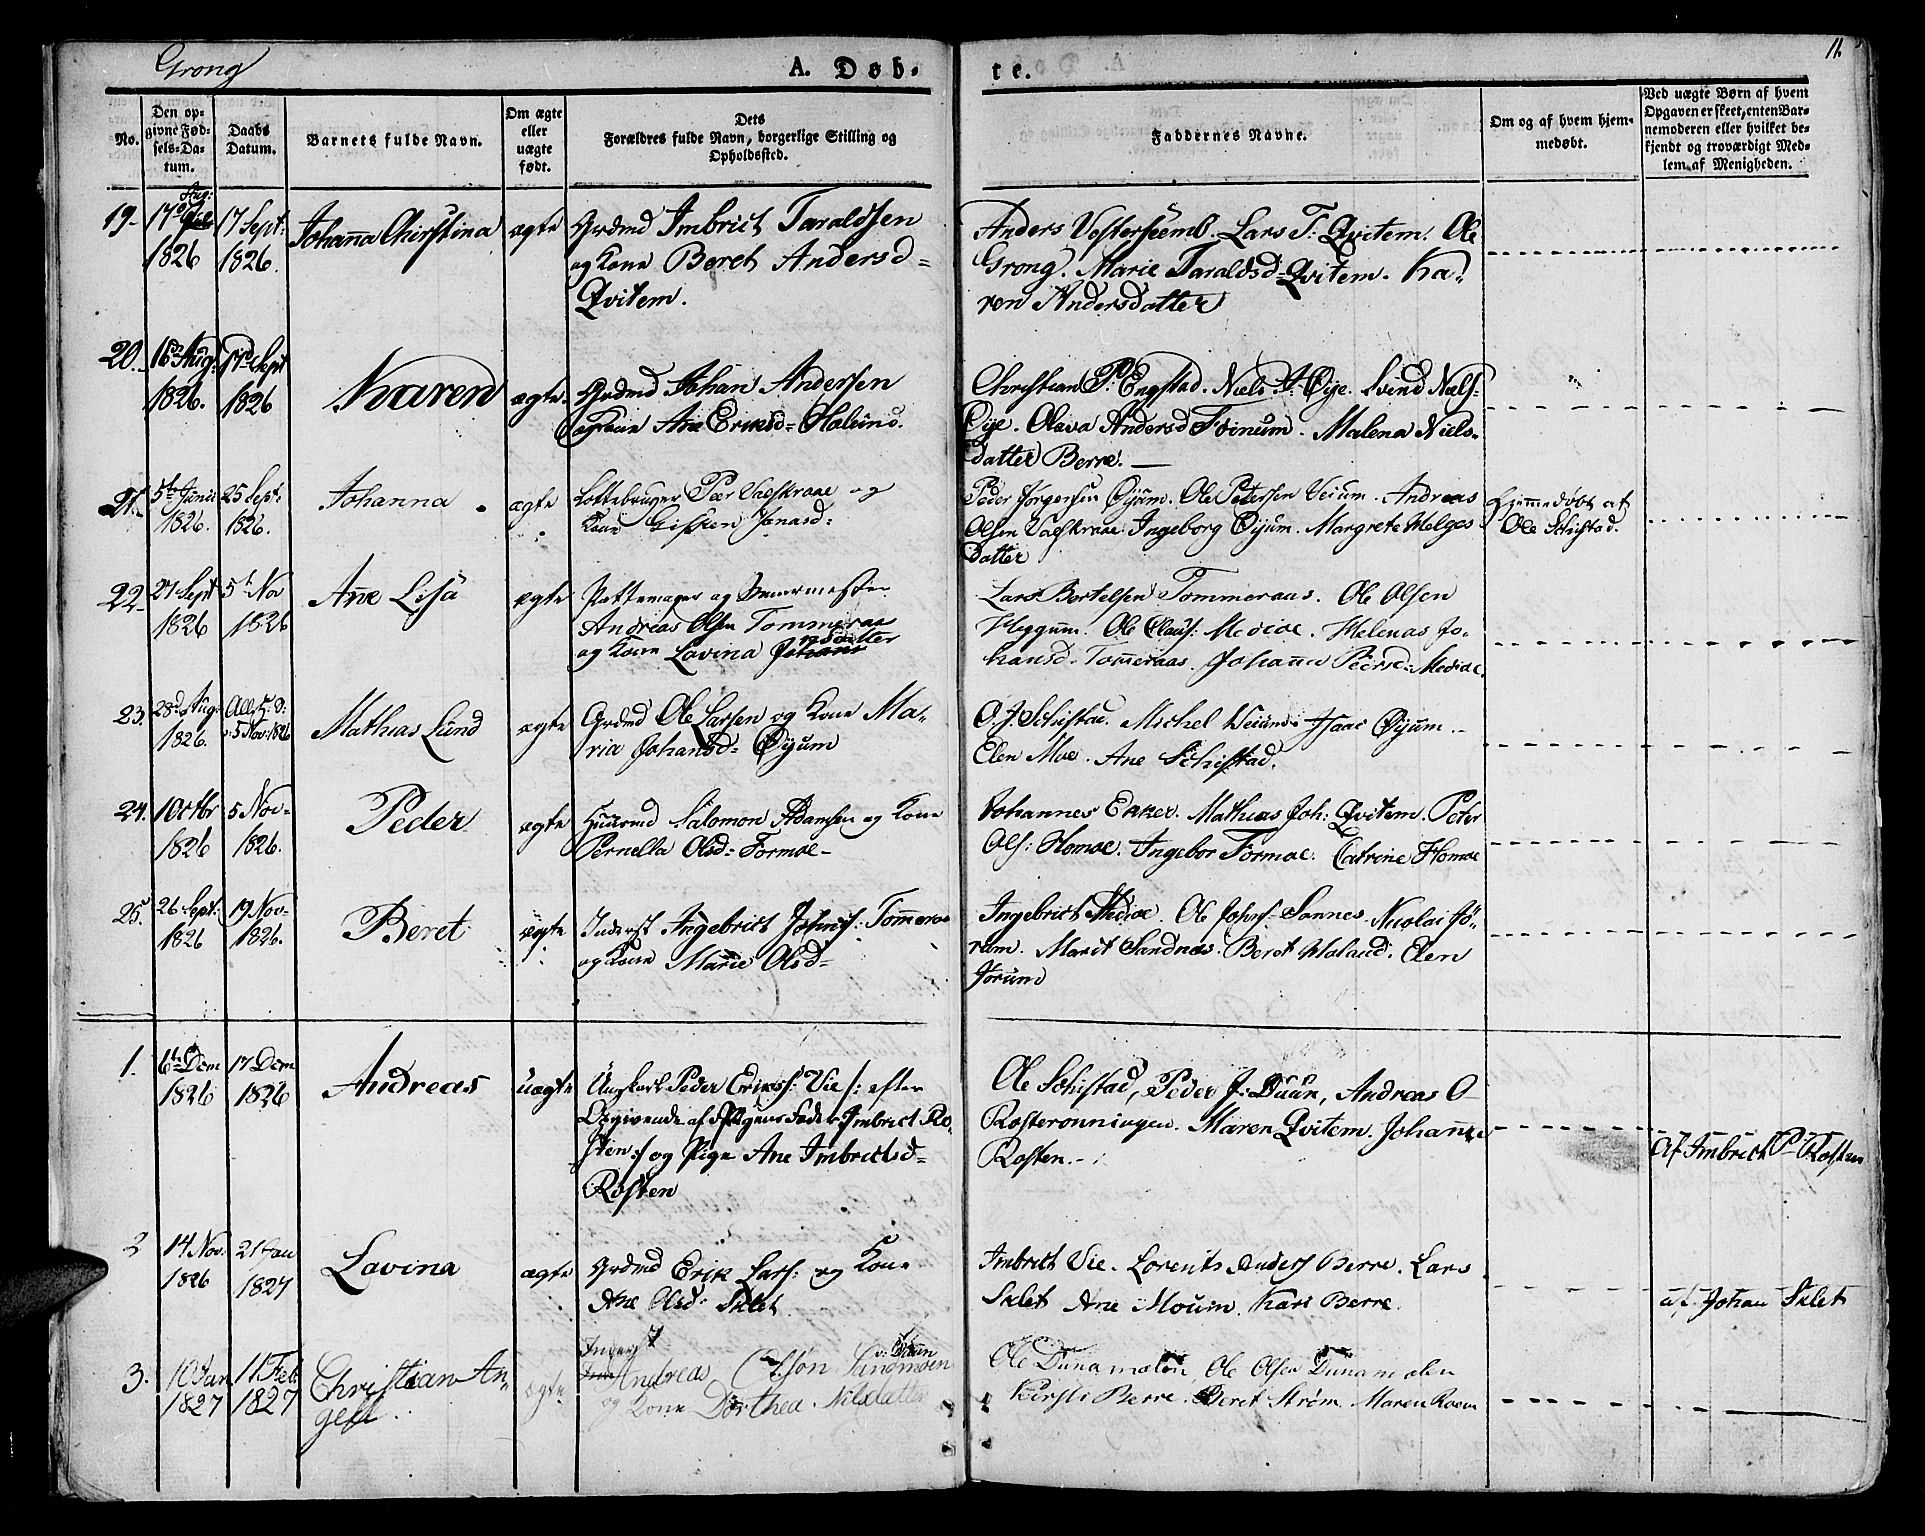 Grong
A. Døb-
te.
11.
No.
Den op-
givne Fød-
sels-Da-
tum.
Daabs
Datum.
Barnets fulde Navn.
Om ægte
eller
uægte
født.
Dets
Forældres fulde Navn, borgerlige Stilling og
Opholdssted.
Faddernes Navne.
Om og af hvem hjem-
medøbt.
Ved uægte Børn af hvem
Opgaven er skeet, enten Bar-
nemoderen eller hvilket be-
kjendt og troværdigt Med-
lem af Menigheden.
19-
Aug:
17
1826
17 Sept:
1826.
Johanna Chirstina
ægte
Grdmd Imbrict Taraldsen
og Kone Beret Andersd=
Qvitem.
Anders Vesterheemb. Lars T: Qvitem. Ole
Grong. Marie Taraldsd= Qvitem. Ka-
ren Andersdatter
20.
16 Aug:
1826.
17 Sept
1826
Karen
ægte.
Grdmd Johan Andersen
og Kone Ane Eriksd=
Christian P: Engstad. Niels J: Øye. Niels-
Øye. Olava Andersd Føinum. Malena Niels-
datter Berre. —
21.
5te Junii
1826.
25 Sept:
1826.
Johanna
ægte
Per Valskraae og
Kone Jonasd=
Peder Jørgensen Øyum. Ole Petersen Veium. Andreas
Olsen Valskraae Ingeborg Øyum. Margrete Helges
datter
Hjemmedøbt af
Ole Schistad.
22-
27 Sept
1826
5t Nov
1826
Ane Lisa
ægte
Andreas Olsen Tommeraas
og Kone Lavina Johansdatter
Lars Bertelsen Tommeraas. Ole Olsen
Heggum. Ole Claus: Medioe. Helenas Jo-
hansd. Tommeraas. Johanna Medioe.
23.
28d Aug:
1826.
5 Nov: 1826
Mathias Lund
ægte
Grdmd Ole Larsen og Kone Ma-
ria Johansd= Øyum
O. J. Schistad. Michel Veium. Isaac Øyum.
Elen Moe. Ane Schistad.
24.
1 Octbr
1826
5 Nov-
1826.
Peder
ægte
Huusmd Salomon Adamsen og Kone
Pernella Olsd= Formoe-
Johannes Ekker. Mathias Joh: Qvitem. Peter
Ols: Homoe. Ingebor Formoe. Catrine Homoe
25.
26 Sept:
1826
19 Nov-
1826.
Beret
ægte
Inderst Ingebrict Johns: Tommeraas
og Kone Marie Olsd=
Ingebrict Medioe. Ole Johns- Sannes. Nicolai Jø-
rum. Marit Sandnes. Beret Moland. Elen
Jørum
1.
6te Dcm
1826
17 Dcm
1826
Andreas
uægte
Ungkarl Peder Eriks: Vie /: efter
Opgivende af Pigens Fader Imbrict Ro-
sten :/ og Pige Ane Imbrictsd=
Rosten
Ole Schistad, Peder J: Duun, Andreas O
Rosterønningen. Maren Qvitem. Johanna
Rosten.
Af Imbrict P. Rosten
2
14 Nov:
1826
21 Jan
1827
Lavina
ægte
Grdmd Erik Lars: og Kone
Ane Olsd: Sklet
Imbrict Vie. Lorents Anders Berre. Lars
Sklet Ane Moum. Kari Berre.
af. Johan Sklet
3.
10 Jan
1827
11 Feb
1827
Christian An-
gell.
ægte
Inderst
Andreas Olsøn Sandmoen
og Kone Dorthea Nilsdatter
Ole Dunamælen, Ole Olsen Dunamælen
Kirsti Berre. Beret Strøm. Maren Roem